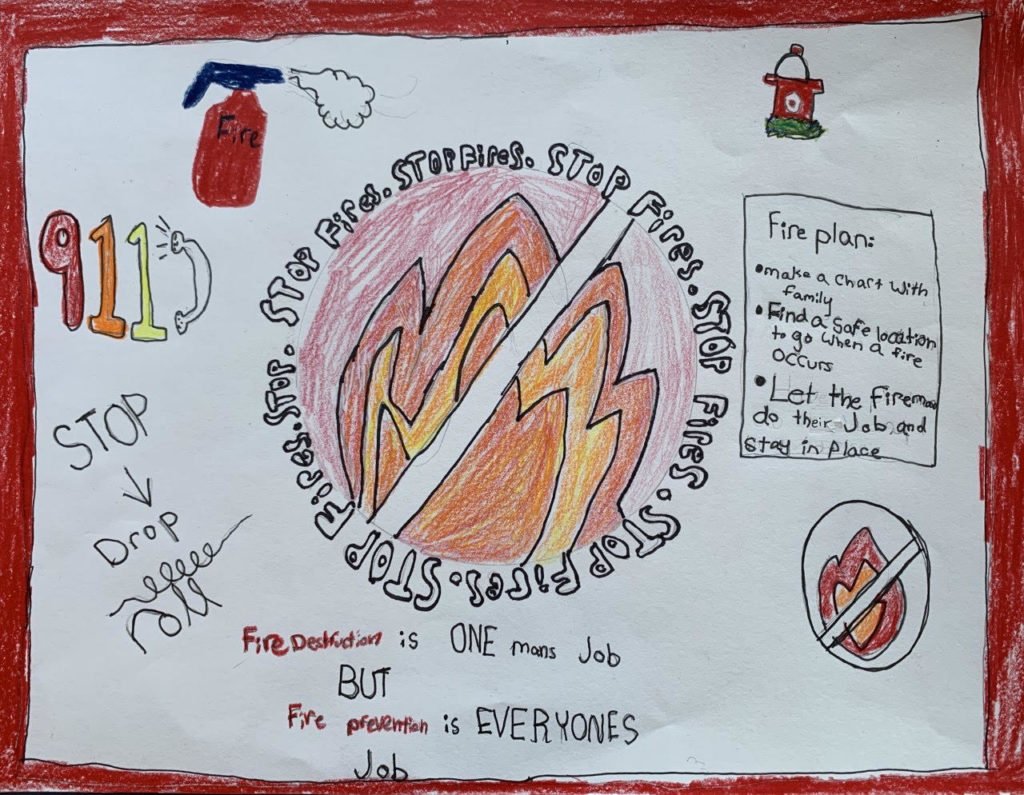 Fire
911
STOP
Drop
roll
STOP Fires. STOP Fires. STOP Fires. STOP Fires. STOP Fires. STOP Fires. STOP Fires. STOP Fires.
Fire plan:
•make a chart with
family
•Find a safe location
to go when a fire
occurs
•Let the firemen
do their Job and
stay in place
Fire Destruction is ONE mans Job
BUT
Fire prevention is EVERYONES
Job